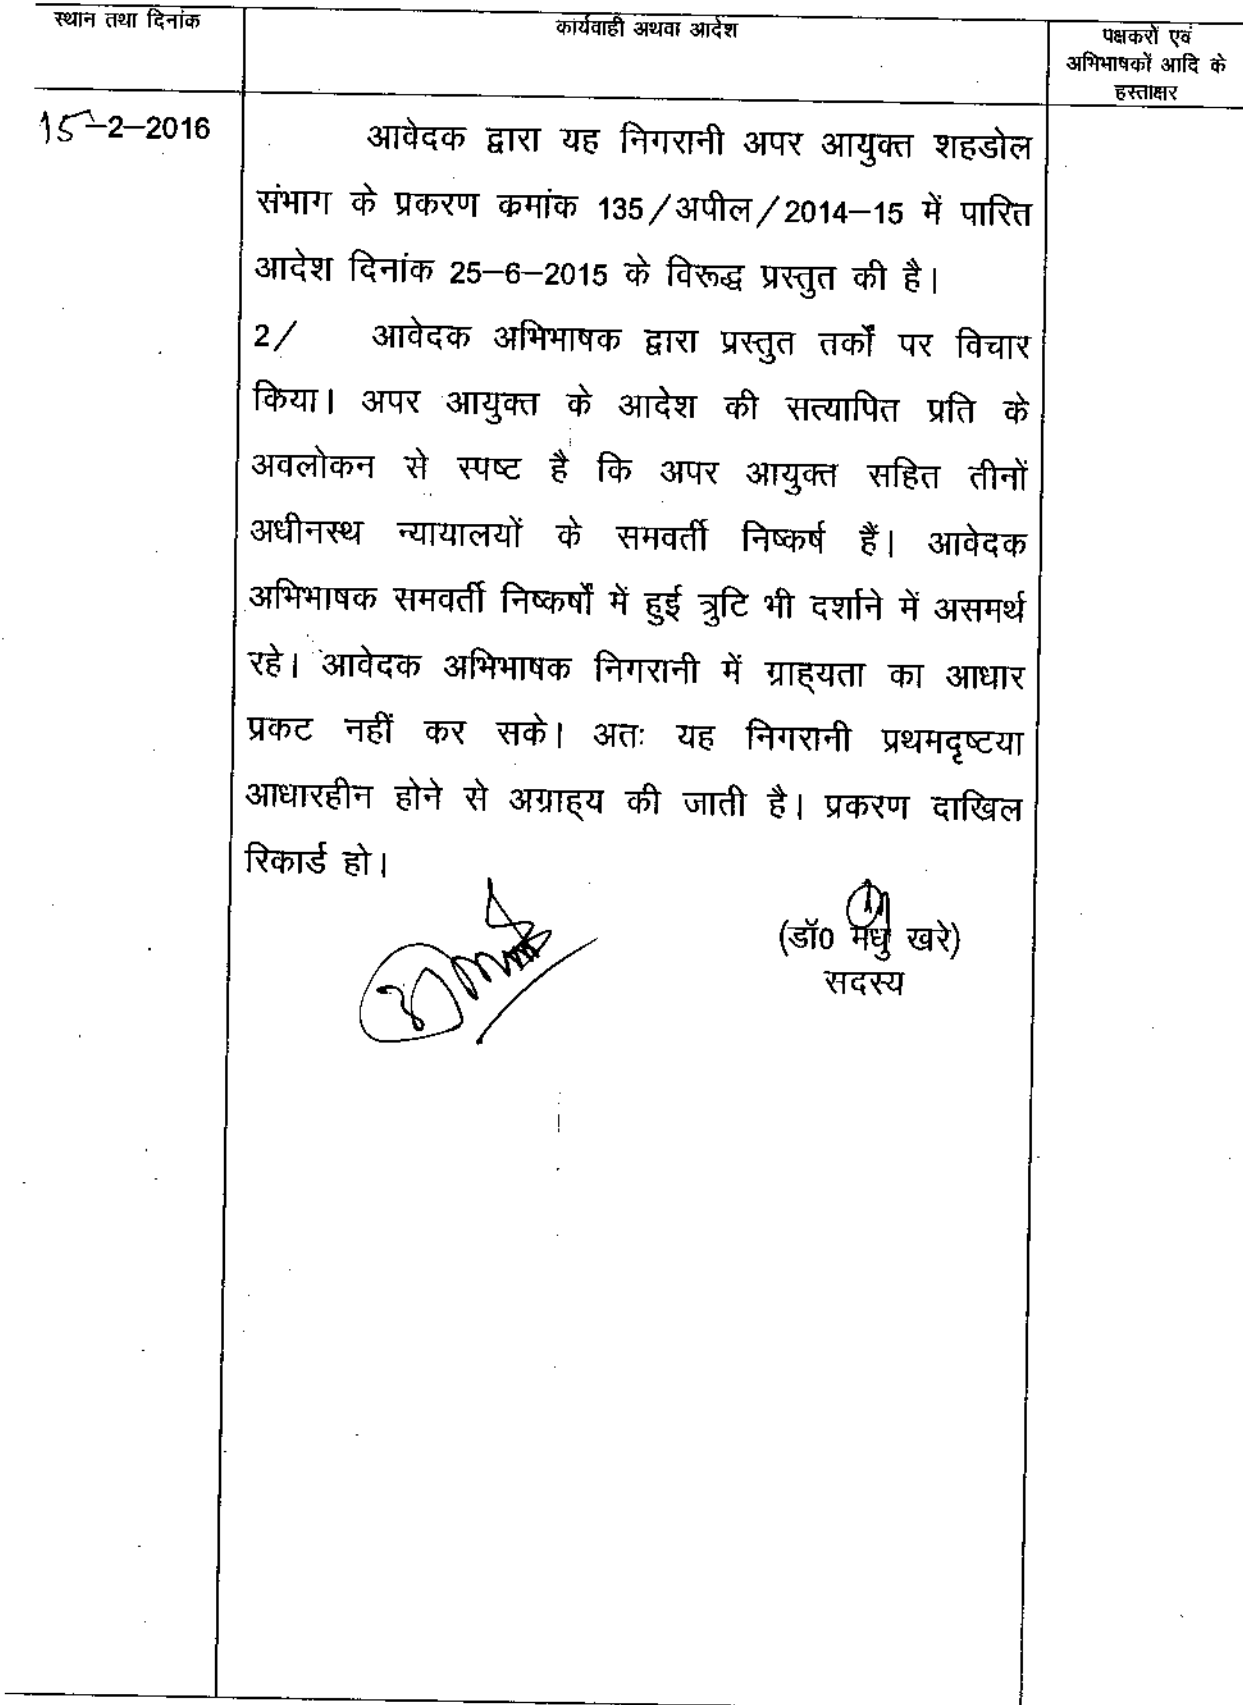 स्थान तथा दिनांक
कार्यवाही अथवा आदेश
पक्षकरों एवं
अभिभाषकों आदि के
हस्ताक्षर
15-2-2016
आवेदक द्वारा यह निगरानी अपर आयुक्त शहडोल
संभाग के प्रकरण कमांक 135/अपील/2014-15 में पारित
आदेश दिनांक 25-6-2015 के विरूद्ध प्रस्तुत की है।
2/ आवेदक अभिभाषक द्वारा प्रस्तुत तर्कों पर विचार
किया। अपर आयुक्त के आदेश की सत्यापित प्रति के
अवलोकन से स्पष्ट है कि अपर आयुक्त सहित तीनों
अधीनस्थ न्यायालयों के समवर्ती निष्कर्ष हैं। आवेदक
अभिभाषक समवर्ती निष्कर्षों में हुई त्रुटि भी दर्शाने में असमर्थ
रहे। आवेदक अभिभाषक निगरानी में ग्राह्यता का आधार
प्रकट नहीं कर सके। अतः यह निगरानी प्रथमदृष्टया
आधारहीन होने से अग्राह्य की जाती है। प्रकरण दाखिल
रिकार्ड हो।
(डॉ0 मधु खरे)
सदस्य